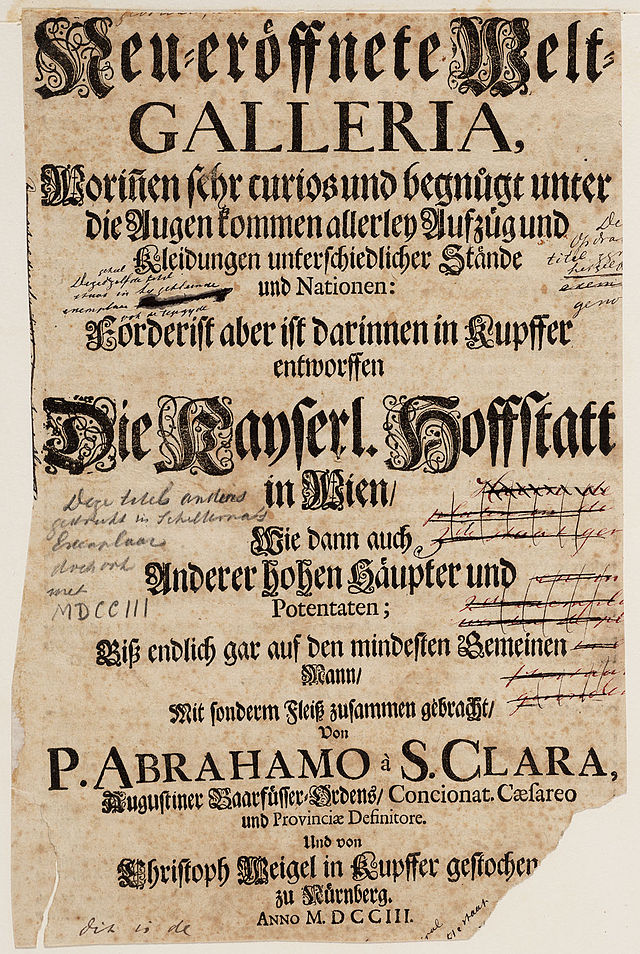 Neu-eröffnete Welt-
GALLERIA,
Woriñen sehr curios und begnůgt unter
die Augen kommen allerley Aufzůg und
Kleidungen unterschiedlicher Stände
und Nationen:
Forderist aber ist darinnen in Kupffer
entworffen
Die Kayserl. Hoffstatt
in Wien/
Wie dann auch
Anderer hohen Häupter und
Potentaten;
Biß endlich gar auf den mindesten Gemeinen
Mann/
Mit sonderm Fleiß zusammen gebracht/
Von
P. ABRAHAMO à S. CLARA,
Augustiner Baarfüsser-Ordens/ Concionat. Cæsareo
und Provinciæ Definitore.
Und von
Christoph Weigel in Kupffer gestochen
zu Nürnberg.
ANNO M. DCCIII.
Deze titel anders
gedrukt in
Exemplaar
doch ook
met
MDCCIII
dit is de